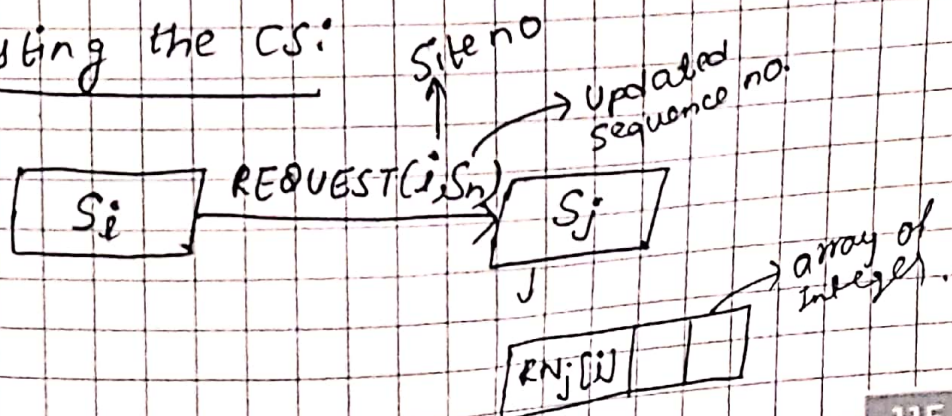 sting the CS:
Site no
Updated
Sequence no.
REQUEST(i,Sn)
Si
Sj
j
array of
Integer.
RNj[i]